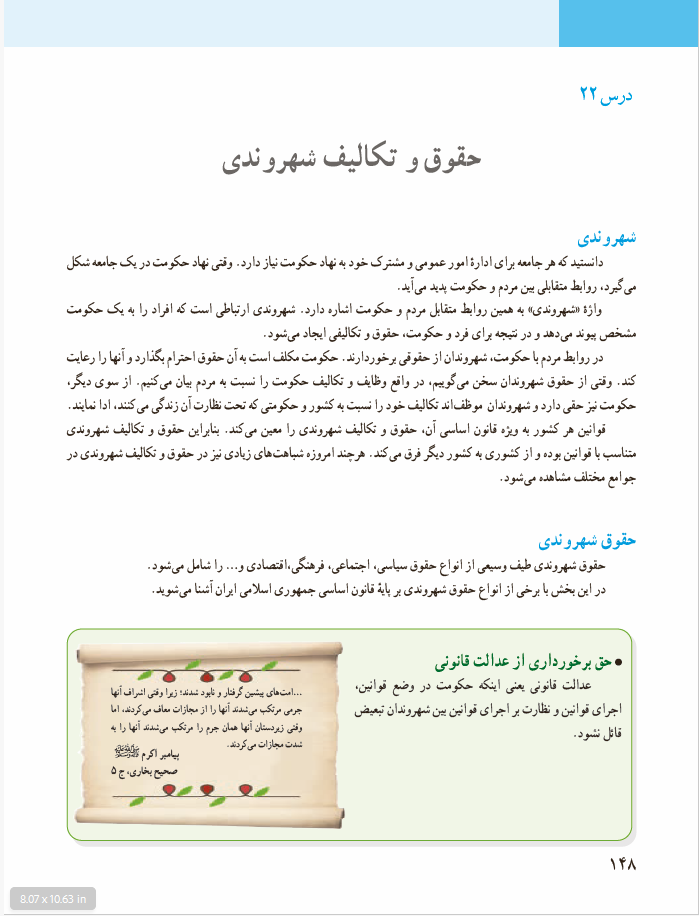 درس ۲۲
حقوق و تکالیف شهروندی
شهروندی
دانستید که هر جامعه برای ادارهٔ امور عمومی و مشترک خود به نهاد حکومت نیاز دارد. وقتی نهاد حکومت در یک جامعه شکل
می‌گیرد، روابط متقابلی بین مردم و حکومت پدید می‌آید.
واژهٔ «شهروندی» به همین روابط متقابل مردم و حکومت اشاره دارد. شهروندی ارتباطی است که افراد را به یک حکومت
مشخص پیوند می‌دهد و در نتیجه برای فرد و حکومت، حقوق و تکالیفی ایجاد می‌شود.
در روابط مردم با حکومت، شهروندان از حقوقی برخوردارند. حکومت مکلف است به آن حقوق احترام بگذارد و آنها را رعایت
کند. وقتی از حقوق شهروندان سخن می‌گوییم، در واقع وظایف و تکالیف حکومت را نسبت به مردم بیان می‌کنیم. از سوی دیگر،
حکومت نیز حقی دارد و شهروندان موظف‌اند تکالیف خود را نسبت به کشور و حکومتی که تحت نظارت آن زندگی می‌کنند، ادا نمایند.
قوانین هر کشور به ویژه قانون اساسی آن، حقوق و تکالیف شهروندی را معین می‌کند. بنابراین حقوق و تکالیف شهروندی
متناسب با قوانین بوده و از کشوری به کشور دیگر فرق می‌کند. هرچند امروزه شباهت‌های زیادی نیز در حقوق و تکالیف شهروندی در
جوامع مختلف مشاهده می‌شود.
حقوق شهروندی
حقوق شهروندی طیف وسیعی از انواع حقوق سیاسی، اجتماعی، فرهنگی،اقتصادی و... را شامل می‌شود.
در این بخش با برخی از انواع حقوق شهروندی بر پایهٔ قانون اساسی جمهوری اسلامی ایران آشنا می‌شوید.
● حق برخورداری از عدالت قانونی
عدالت قانونی یعنی اینکه حکومت در وضع قوانین،
اجرای قوانین و نظارت بر اجرای قوانین بین شهروندان تبعیض
قائل نشود.
...امت‌های پیشین گرفتار و نابود شدند؛ زیرا وقتی اشراف آنها
جرمی مرتکب می‌شدند آنها را از مجازات معاف می‌کردند، اما
وقتی زیردستان آنها همان جرم را مرتکب می‌شدند آنها را به
شدت مجازات می‌کردند.
پیامبر اکرم ﷺ
صحیح بخاری، ج ۵
۱۴۸
8.07 x 10.63 in